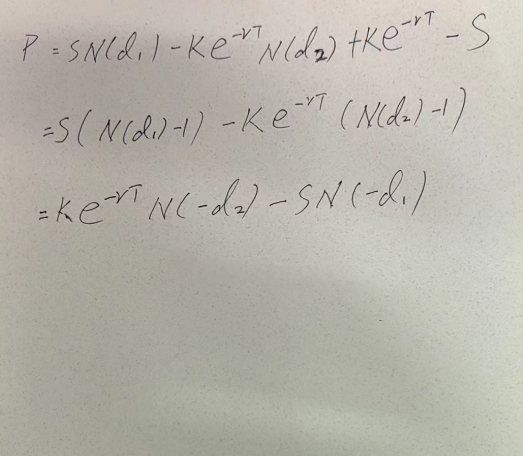 P = SN(d₁) - Ke^{-rT} N(d₂) + Ke^{-rT} - S
= S(N(d₁)-1) - Ke^{-rT} (N(d₂)-1)
= Ke^{-rT} N(-d₂) - SN(-d₁)